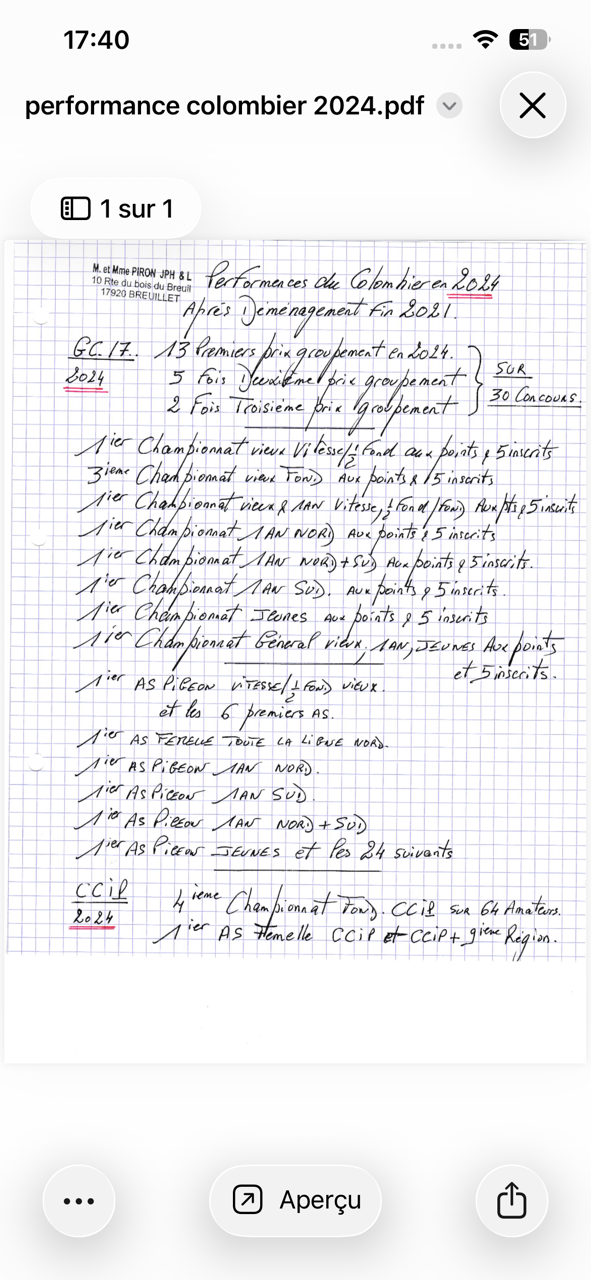 17:40
51
performance colombier 2024.pdf
1 sur 1
M. et Mme PIRON JPH & L
10 Rte du bois du Breuil
17920 BREUILLET
Performences du Colombier en 2024
Après Déménagement Fin 2021.
GC.17. 13 Premiers prix groupement en 2024.
2024 5 Fois Deuxième prix groupement
2 Fois Troisième prix groupement
SUR
30 CONCOURS.
1ier Championnat vieux Vitesse/½ Fond aux points & 5 inscrits
3ieme Championnat vieux FOND Aux points & 5 inscrits
1ier Championnat vieux & 1AN Vitesse,½ Fond/Fond Aux pts & 5 inscrits
1ier Championnat 1AN NORD Aux points & 5 inscrits
1ier Championnat 1AN NORD+SUD Aux points & 5 inscrits.
1ier Championnat 1AN SUD. Aux points & 5 inscrits.
1ier Championnat Jeunes aux points & 5 inscrits
1ier Championnat Général vieux, 1AN, JEUNES Aux points
et 5 inscrits.
1ier AS PIGEON VITESSE/½ FOND VIEUX.
et les 6 premiers AS.
1ier AS FEMELLE TOUTE LA LIGNE NORD.
1ier AS PIGEON 1AN NORD.
1ier AS PIGEON 1AN SUD.
1ier AS PIGEON 1AN NORD+SUD
1ier AS PIGEON JEUNES et les 24 suivants
CCIP
2024
4ieme Championnat FOND. CCIP SUR 64 Amateurs.
1ier AS Femelle CCIP et CCIP + 9ieme Région.
Aperçu